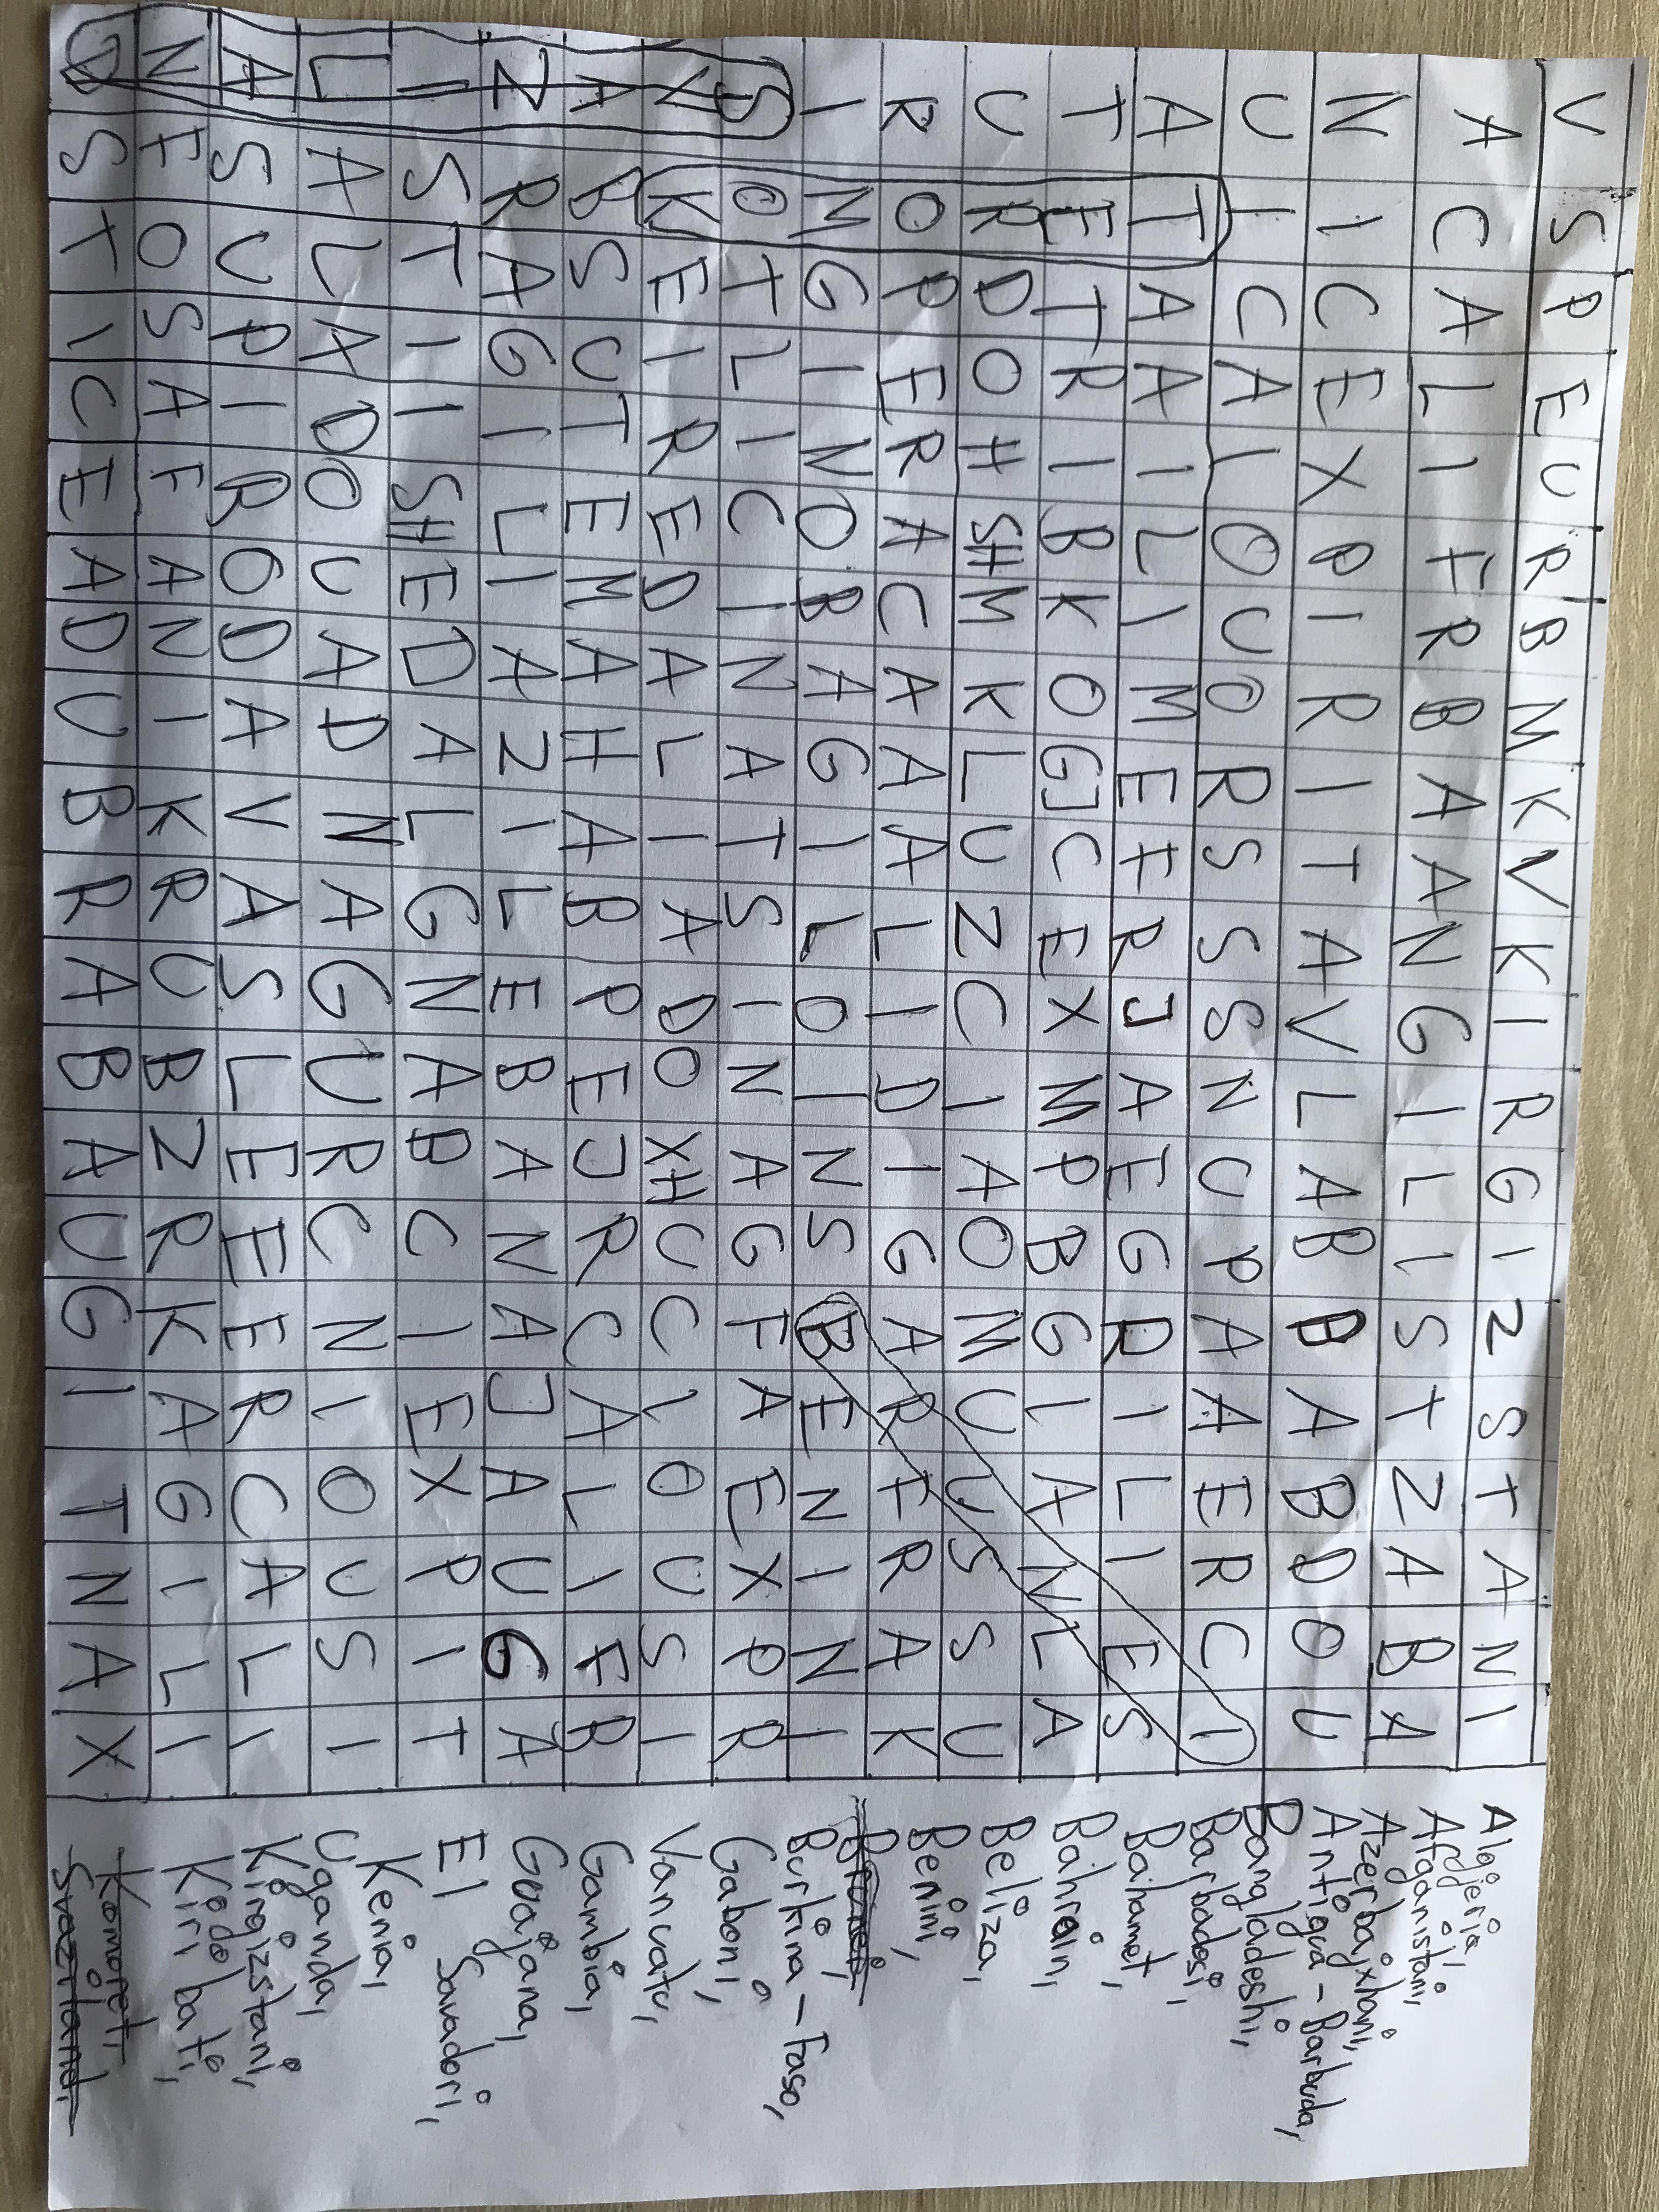 V S P E U R B M K V K I R G I Z S T A N I
A C A L I F R B A A N G I L I S T Z A B A
N I C E X P I R I T A V L A B B A B D O U
U I C A L O U O R S S S N U P A A E R C I
A T A A I L I M E F R J A E G R I L I E S
T E T R I B K O GJ C E X M P B G L A N L A
U R D O H SH M K L U Z C I A O M U U S S U
R O P E R A C A A A L I D I G A R F R A K
I M G I N O B A G I L O I N S B E N I N I
S O T L I C I N A T S I N A G F A E X P R
V K E I R E D A L I A D O XH U C L O U S I
A B S U T E M A H A B P E J R C A L I F B
Z R A G I L I A Z I L E B A N A J A U G A
I S T I I SH E D A L G N A B C I E X P I T
L A L A D O U A D N A G U R C N I O U S I
A S U P I R O D A V A S L E E E R C A L I
N F O S A F A N I K R U B Z R K A G I L I
D S T I C E A D U B R A B A U G I T N A X
Algjeria,
Afganistani,
Azerbajxhani,
Antigua-Barbuda,
Bangladeshi,
Barbadosi,
Bahamet,
Bahrein,
Beliza,
Benini,
Brunei,
Burkina-Faso,
Gaboni,
Vanuatu,
Gambia,
Guajana,
El Savadori,
Kenia,
Uganda,
Kirgizstani,
Kiribati,
Komoret,
Svaziland,